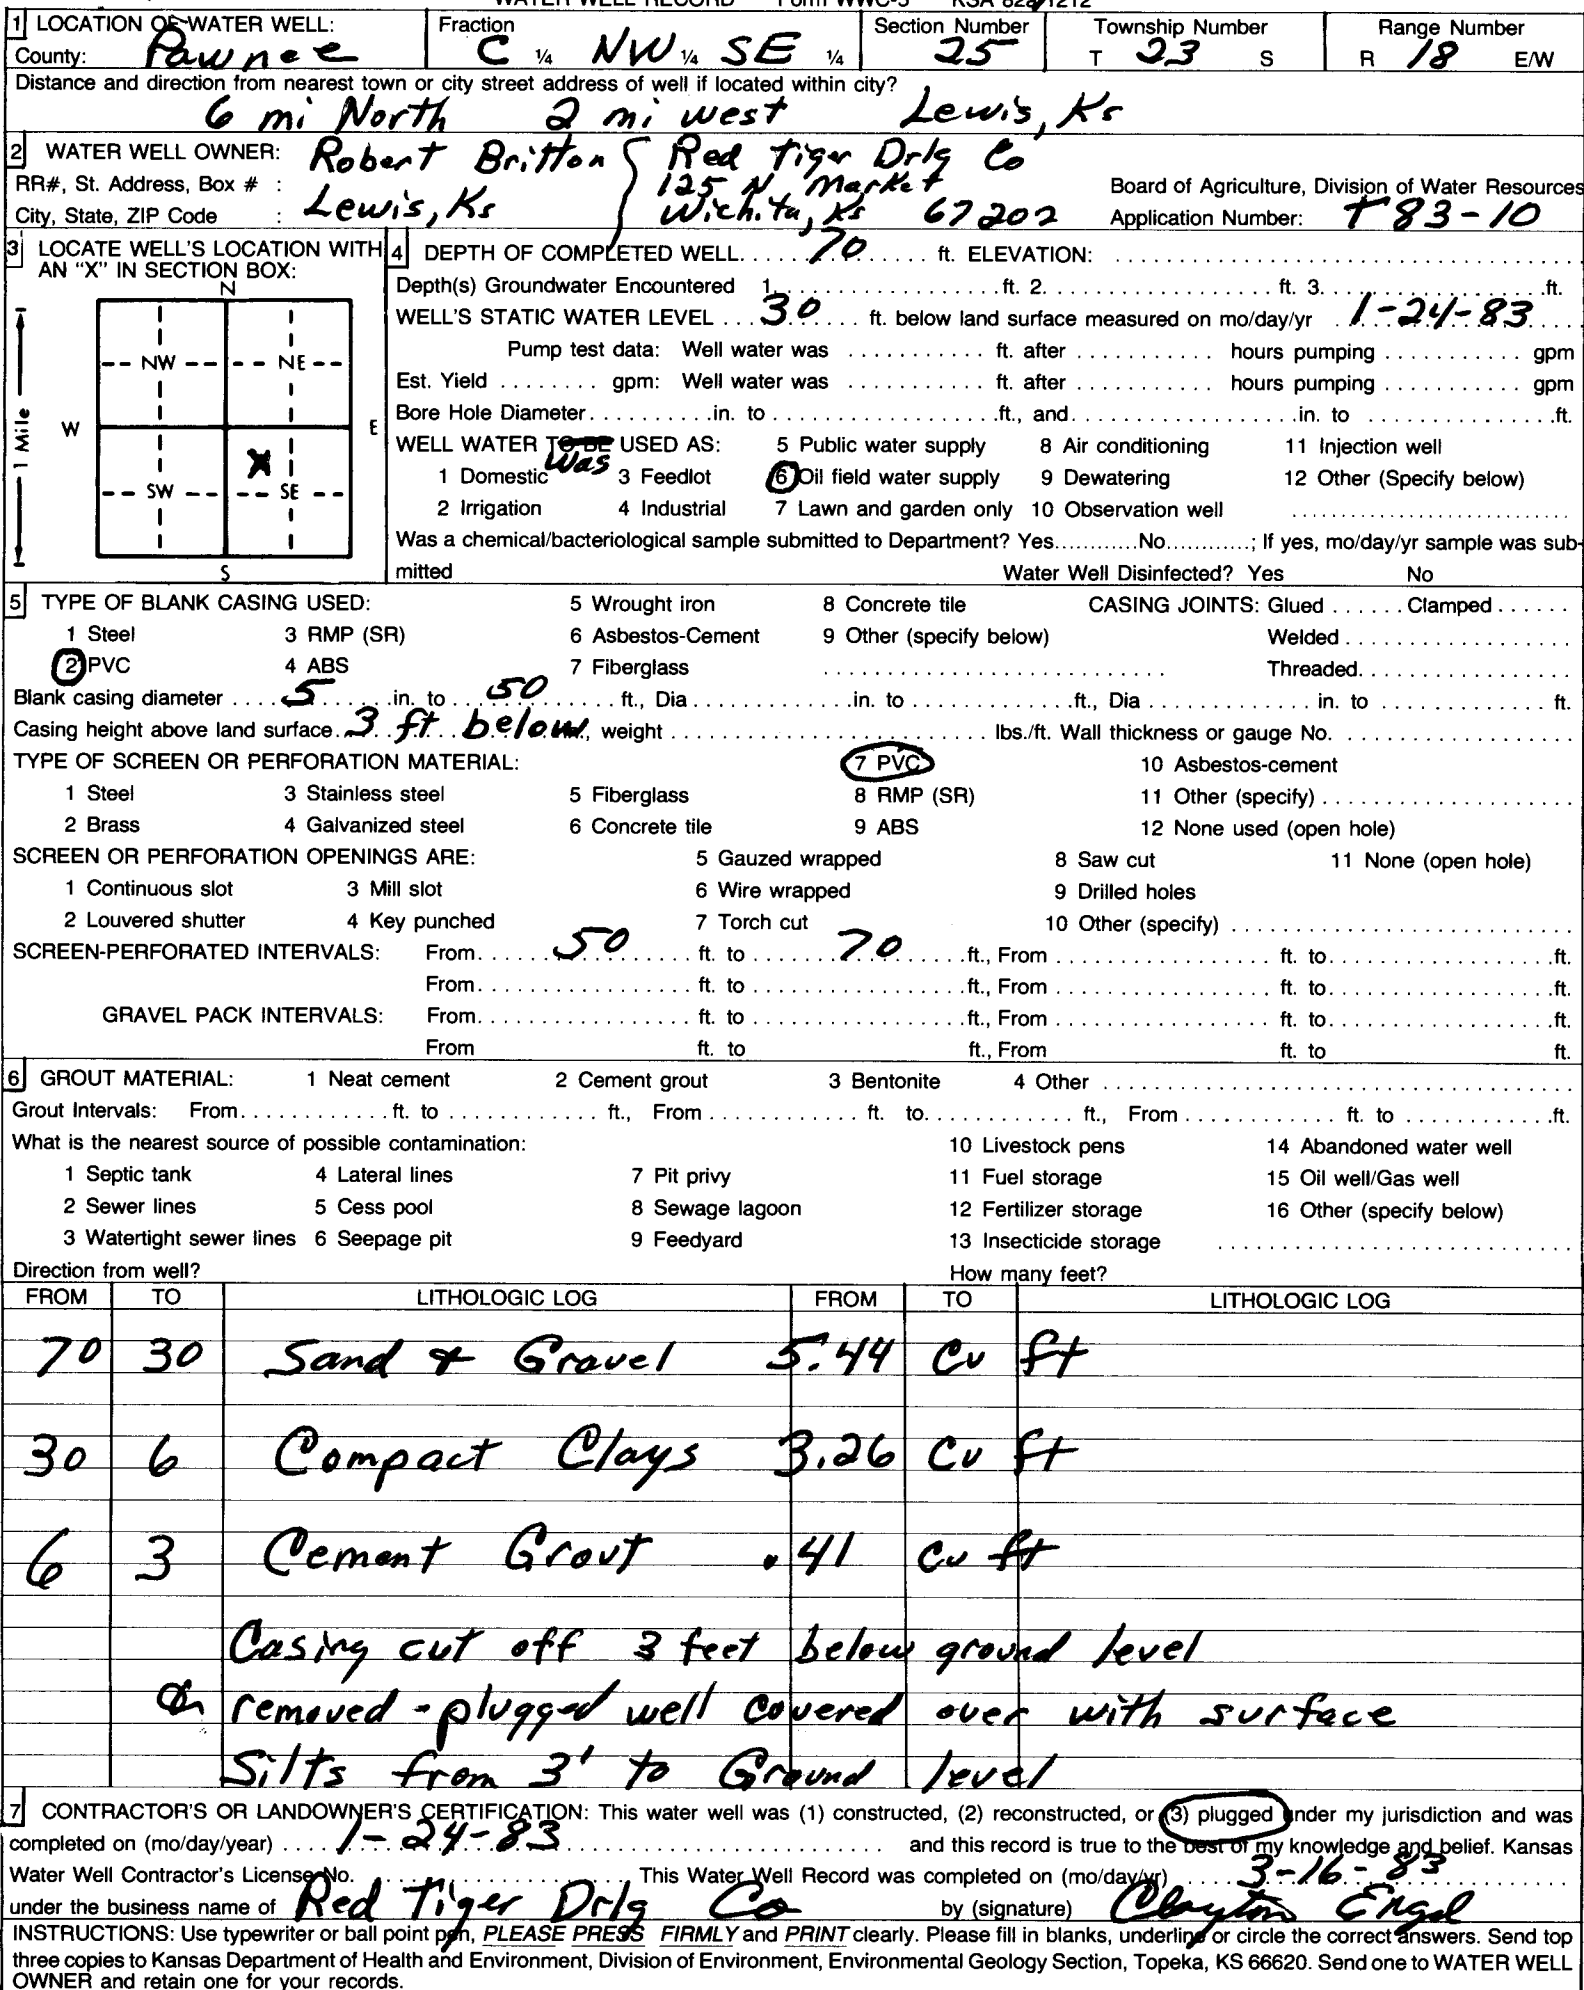 WATER WELL RECORD Form WWC-5 KSA 82a-1212
1 LOCATION OF WATER WELL: Fraction Section Number Township Number Range Number
County: Pawnee C ¼ NW ¼ SE ¼ 25 T 23 S R 18 E/W
Distance and direction from nearest town or city street address of well if located within city?
6 mi North 2 mi west Lewis, Ks
2 WATER WELL OWNER: Robert Britton { Red Tiger Drlg Co
RR#, St. Address, Box # : 125 N. Market Board of Agriculture, Division of Water Resources
City, State, ZIP Code : Lewis, Ks Wichita, Ks 67202 Application Number: T 83-10
3 LOCATE WELL'S LOCATION WITH AN "X" IN SECTION BOX:
N
NW NE
W E
X
SW SE
S
1 Mile
4 DEPTH OF COMPLETED WELL 70 ft. ELEVATION:
Depth(s) Groundwater Encountered 1. ft. 2. ft. 3. ft.
WELL'S STATIC WATER LEVEL 30 ft. below land surface measured on mo/day/yr 1-24-83
Pump test data: Well water was ft. after hours pumping gpm
Est. Yield gpm: Well water was ft. after hours pumping gpm
Bore Hole Diameter in. to ft., and in. to ft.
WELL WATER TO BE USED AS: 5 Public water supply 8 Air conditioning 11 Injection well
was
1 Domestic 3 Feedlot 6 Oil field water supply 9 Dewatering 12 Other (Specify below)
2 Irrigation 4 Industrial 7 Lawn and garden only 10 Observation well
Was a chemical/bacteriological sample submitted to Department? Yes No ; If yes, mo/day/yr sample was sub-
mitted Water Well Disinfected? Yes No
5 TYPE OF BLANK CASING USED: 5 Wrought iron 8 Concrete tile CASING JOINTS: Glued Clamped
1 Steel 3 RMP (SR) 6 Asbestos-Cement 9 Other (specify below) Welded
2 PVC 4 ABS 7 Fiberglass Threaded
Blank casing diameter 5 in. to 50 ft., Dia in. to ft., Dia in. to ft.
Casing height above land surface 3 ft below, weight lbs./ft. Wall thickness or gauge No.
TYPE OF SCREEN OR PERFORATION MATERIAL: 7 PVC 10 Asbestos-cement
1 Steel 3 Stainless steel 5 Fiberglass 8 RMP (SR) 11 Other (specify)
2 Brass 4 Galvanized steel 6 Concrete tile 9 ABS 12 None used (open hole)
SCREEN OR PERFORATION OPENINGS ARE: 5 Gauzed wrapped 8 Saw cut 11 None (open hole)
1 Continuous slot 3 Mill slot 6 Wire wrapped 9 Drilled holes
2 Louvered shutter 4 Key punched 7 Torch cut 10 Other (specify)
SCREEN-PERFORATED INTERVALS: From 50 ft. to 70 ft., From ft. to ft.
From ft. to ft., From ft. to ft.
GRAVEL PACK INTERVALS: From ft. to ft., From ft. to ft.
From ft. to ft., From ft. to ft.
6 GROUT MATERIAL: 1 Neat cement 2 Cement grout 3 Bentonite 4 Other
Grout Intervals: From ft. to ft., From ft. to ft., From ft. to ft.
What is the nearest source of possible contamination: 10 Livestock pens 14 Abandoned water well
1 Septic tank 4 Lateral lines 7 Pit privy 11 Fuel storage 15 Oil well/Gas well
2 Sewer lines 5 Cess pool 8 Sewage lagoon 12 Fertilizer storage 16 Other (specify below)
3 Watertight sewer lines 6 Seepage pit 9 Feedyard 13 Insecticide storage
Direction from well? How many feet?
FROM TO LITHOLOGIC LOG FROM TO LITHOLOGIC LOG
70 30 Sand & Gravel 5.44 Cu ft
30 6 Compact Clays 3.26 Cu ft
6 3 Cement Grout .41 Cu ft
Casing cut off 3 feet below ground level
removed - plugged well covered over with surface
Silts from 3' to Ground level
7 CONTRACTOR'S OR LANDOWNER'S CERTIFICATION: This water well was (1) constructed, (2) reconstructed, or (3) plugged under my jurisdiction and was
completed on (mo/day/year) 1-24-83 and this record is true to the best of my knowledge and belief. Kansas
Water Well Contractor's License No. This Water Well Record was completed on (mo/day/yr) 3-16-83
under the business name of Red Tiger Drlg Co by (signature) Clayton Engel
INSTRUCTIONS: Use typewriter or ball point pen, PLEASE PRESS FIRMLY and PRINT clearly. Please fill in blanks, underline or circle the correct answers. Send top
three copies to Kansas Department of Health and Environment, Division of Environment, Environmental Geology Section, Topeka, KS 66620. Send one to WATER WELL
OWNER and retain one for your records.